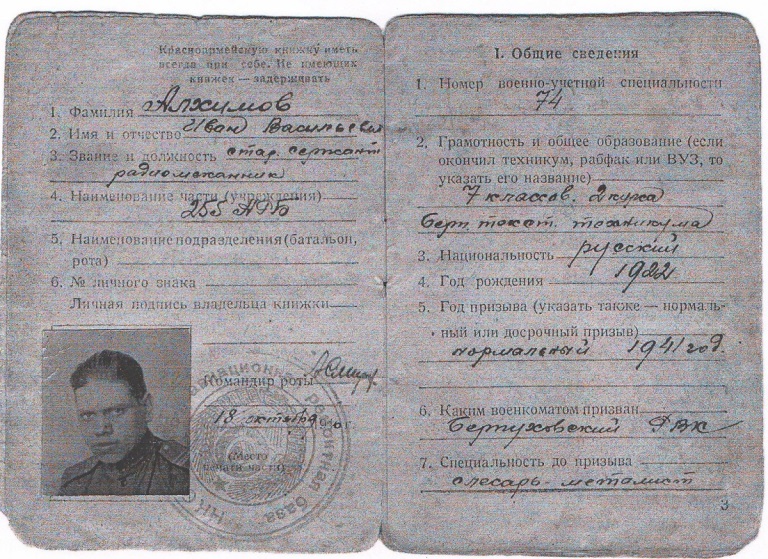 Красноармейскую книжку иметь
всегда при себе. Не имеющих
книжек — задерживать
1. Фамилия Алхимов
2. Имя и отчество Иван Васильевич
3. Звание и должность стар. сержант
радиомеханник
4. Наименование части (учреждения)
255 АРБ
5. Наименование подразделения (батальон,
рота)
6. № личного знака
Личная подпись владельца книжки
Командир роты
18 октября
(Место
печати части)
I. Общие сведения
1. Номер военно-учетной специальности
74
2. Грамотность и общее образование (если
окончил техникум, рабфак или ВУЗ, то
указать его название)
7 классов. 2 курса
текст. техникума
3. Национальность русский
4. Год рождения 1922
5. Год призыва (указать также — нормаль-
ный или досрочный призыв)
нормальный 1941 год.
6. Каким военкоматом призван
РВК
7. Специальность до призыва
слесарь-металист
3